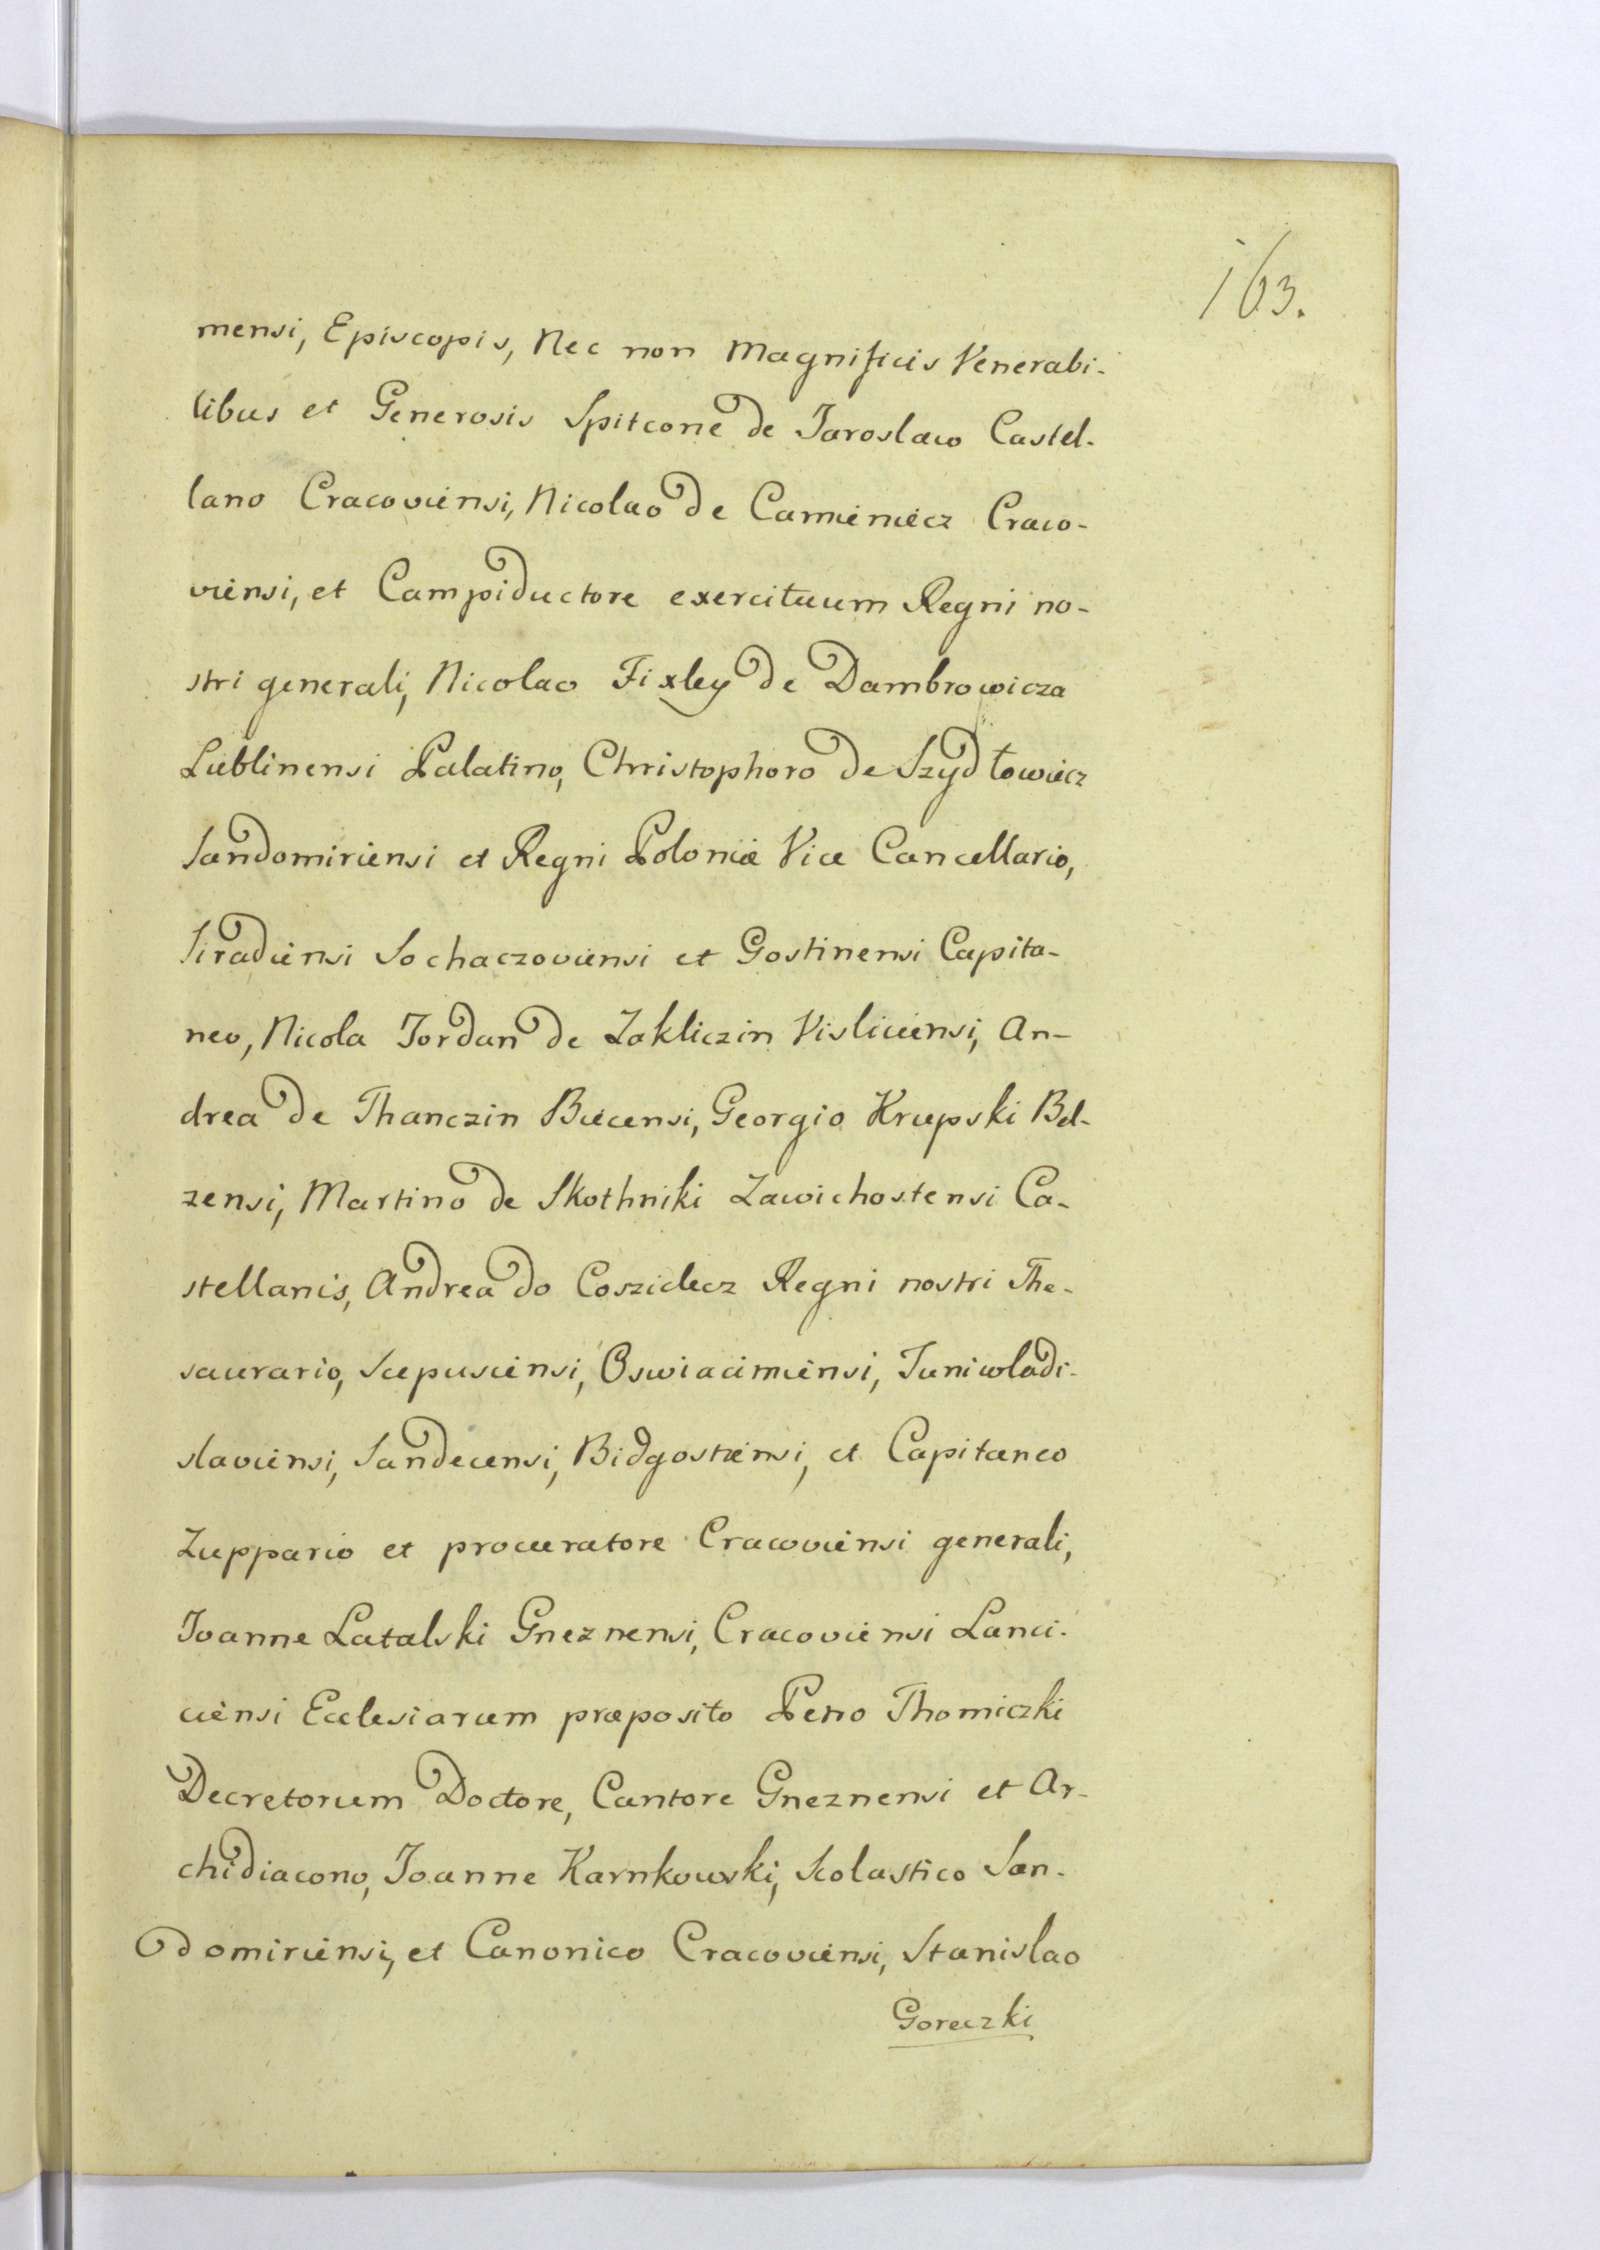 163.
mensi, Episcopis, Nec non Magnificis Venerabi-
libus et Generosis Spitcone de Jaroslaw Castel-
lano Cracoviensi, Nicolao de Camieniecz Craco-
viensi, et Campiductore exercituum Regni no-
stri generali, Nicolao Fixley de Dambrowicza
Lublinensi Palatino, Christophoro de Szydłowiecz
Sandomiriensi et Regni Poloniæ Vice Cancellario,
Siradiensi Sochaczoviensi et Gostinensi Capita-
neo, Nicola Jordan de Zakliczin Visliciensi, An-
drea de Thanczin Biecensi, Georgio Krupski Bel-
zensi, Martino de Skothniki Zawichostensi Ca-
stellanis, Andrea do Coszielecz Regni nostri The-
saurario, Scepusiensi, Oswiacimiensi, Juniwladi-
slaviensi, Sandecensi, Bidgostiensi, et Capitaneo
Zuppario et procuratore Cracoviensi generali,
Joanne Latalski Gneznensi, Cracoviensi Lanci-
ciensi Ecclesiarum præposito Petro Thomiczki
Decretorum Doctore, Cantore Gneznensi et Ar-
chidiacono, Joanne Karnkowski, Scolastico San-
domiriensi, et Canonico Cracoviensi, Stanislao
Goreczki